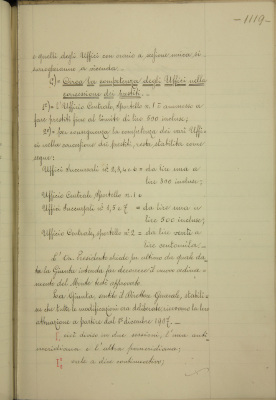 - 1119 -
e quella degli Uffici con orario a sezione unica, si
c) = Circa la competenza degli Uffici nella
concessione dei prestiti. -
1°) = l'Ufficio Centrale, Sportello n. 1 è ammesso a
fare prestiti fino al limite di lire 500 incluse;
2°) = per conseguenza la competenza dei vari Uffi-
ci nella concessione dei prestiti, resta stabilita come
segue:
Uffici Succursali n° 2, 3, 4 e 6 = da lire una a
lire 300 incluse;
Ufficio Centrale, Sportello n. 1 e
Uffici Succursali n° 1, 5 e 7 = da lire una a
lire 500 incluse;
Ufficio Centrale, Sportello n° 2 = da lire venti a
lire centomila. -
L'On. Presidente chiede per ultimo da quale da-
ta la Giunta intenda far decorrere il nuovo ordina-
mento del Monte testè approvato.
La Giunta, sentito il Direttore Generale, stabili-
sce che tutte le modificazioni ora deliberate, avranno la loro
attuazione a partire dal 1° dicembre 1907. -
in due sezioni, l'una anti-
meridiana e l'altra pomeridiana;